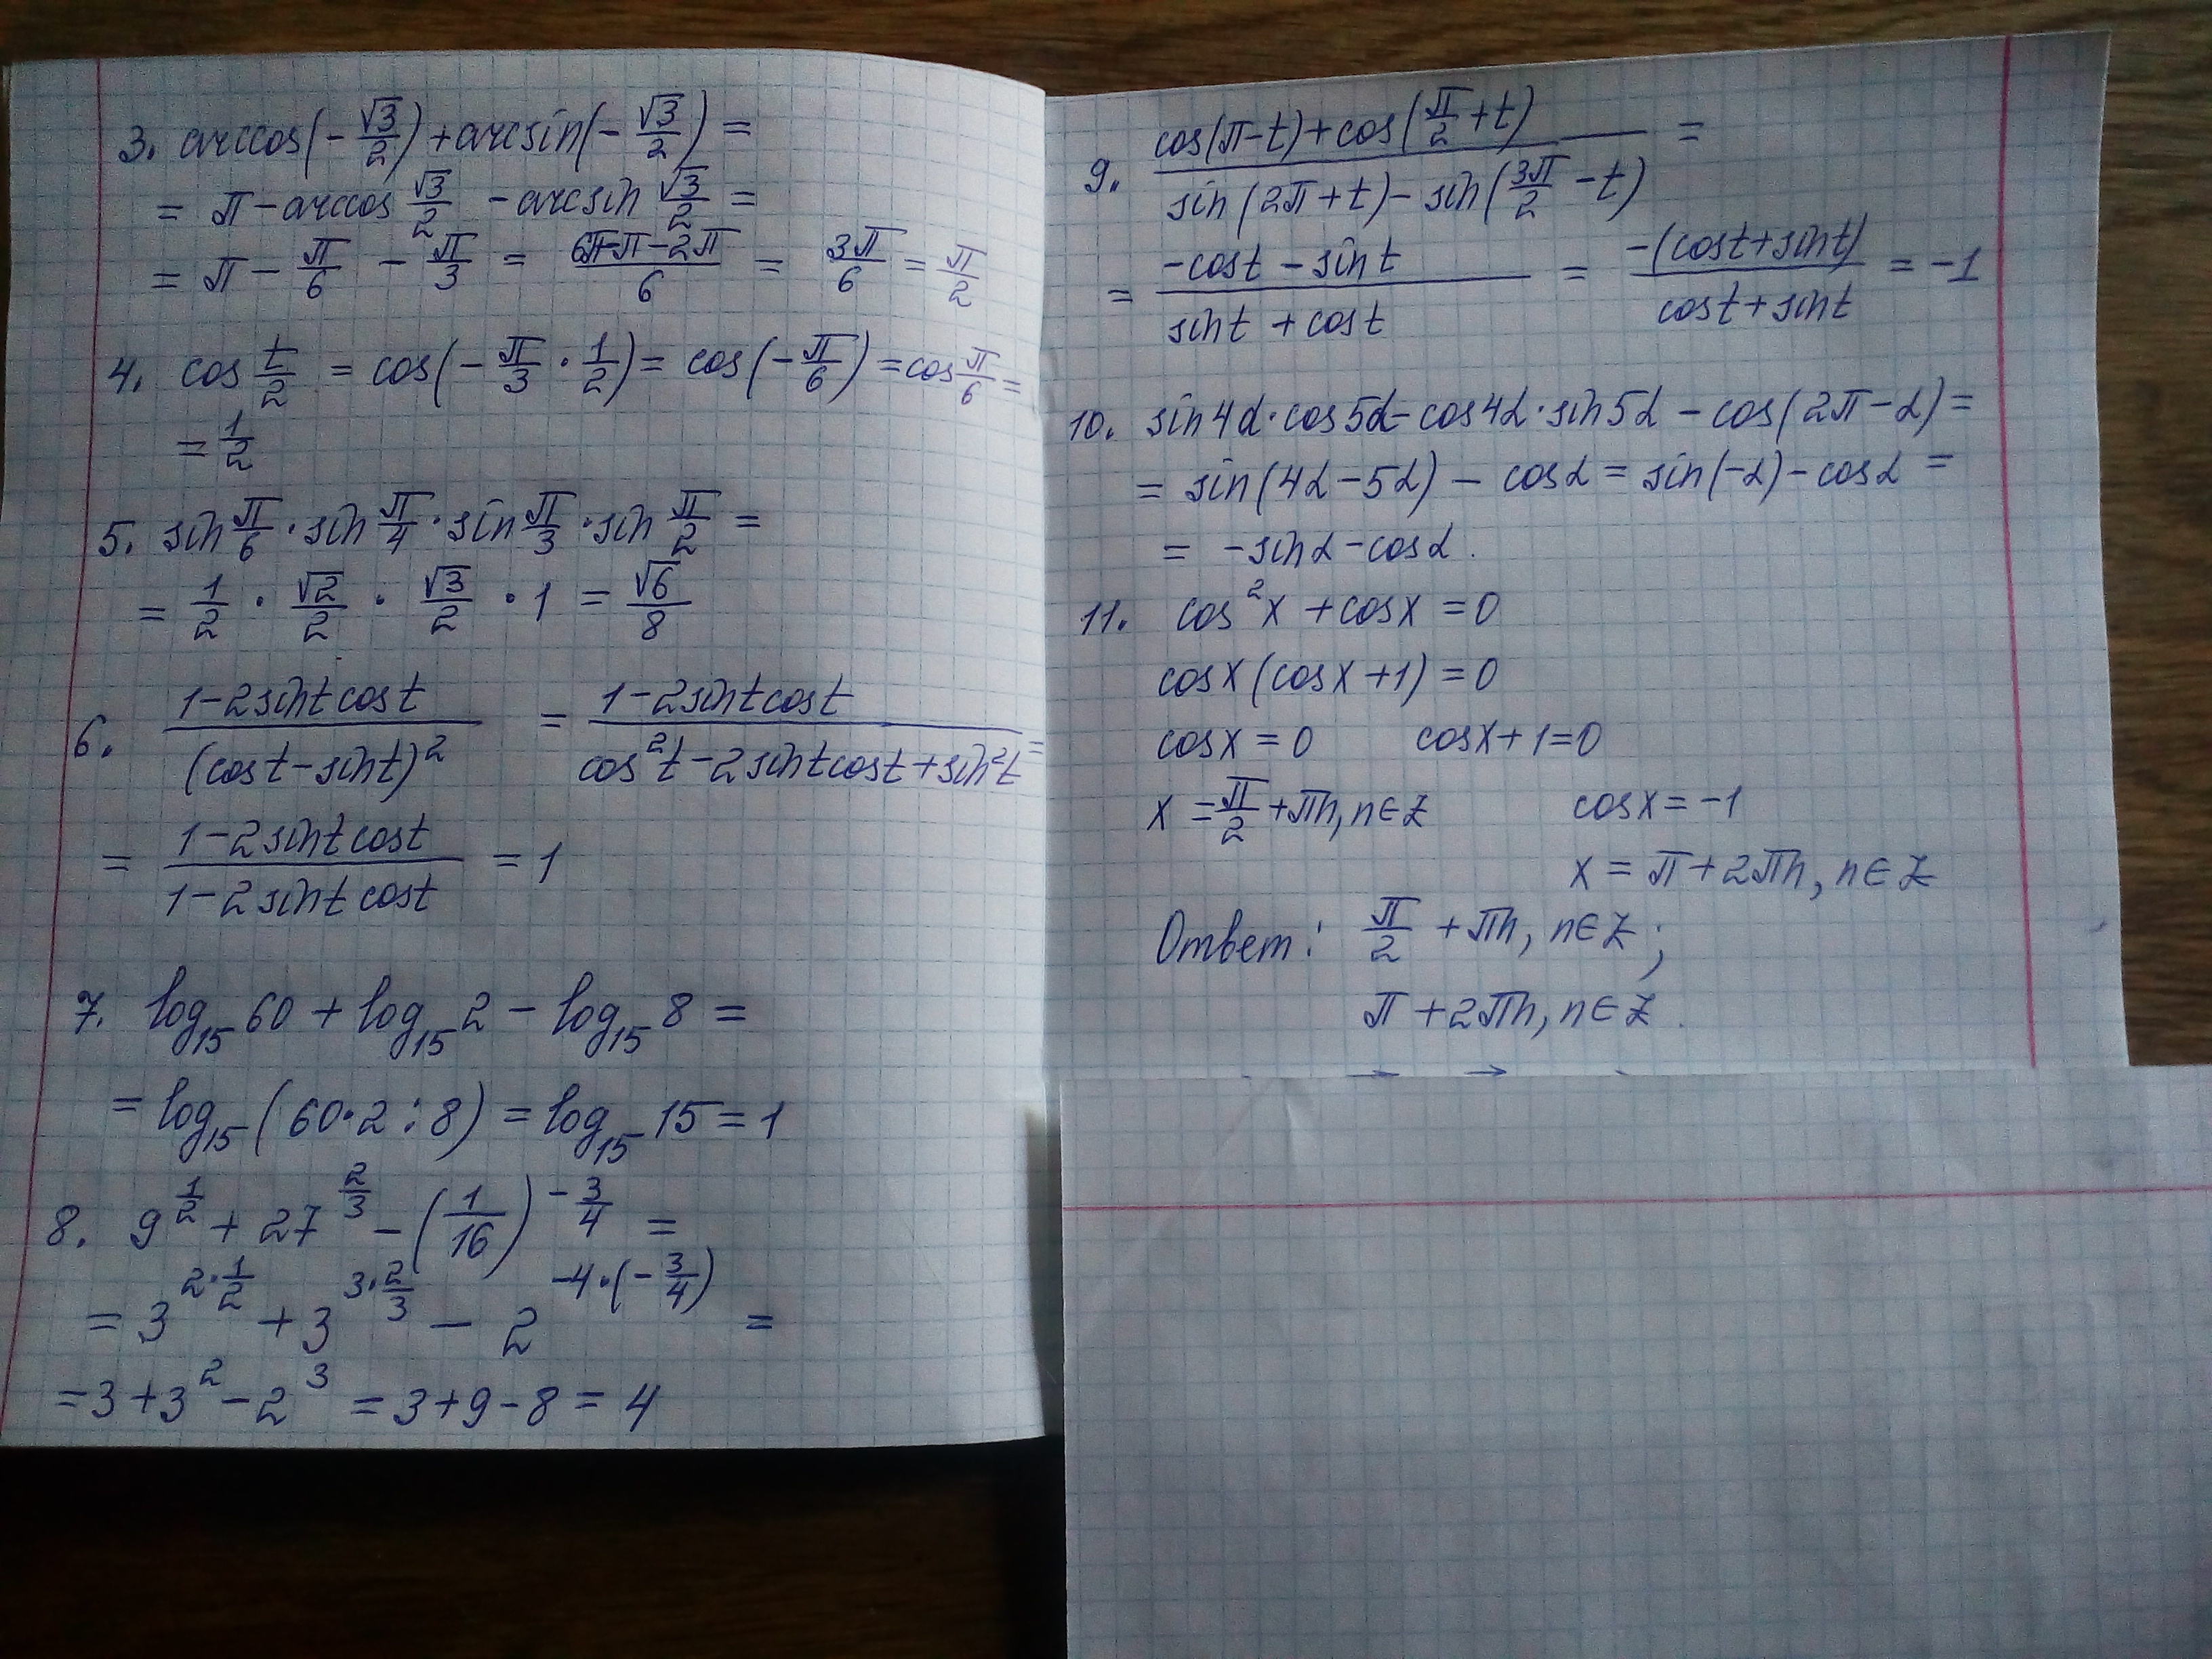 3. arccos(-√3/2)+arcsin(-√3/2) =
= π - arccos √3/2 - arcsin √3/2 =
= π - π/6 - π/3 = (6π-π-2π)/6 = 3π/6 = π/2
4. cos t/2 = cos(-π/3 · 1/2) = cos(-π/6) = cos π/6 =
= 1/2
5. sin π/6 · sin π/4 · sin π/3 · sin π/2 =
= 1/2 · √2/2 · √3/2 · 1 = √6/8
6. (1-2sint cost)/(cost-sint)² = (1-2sintcost)/(cos²t-2sintcost+sin²t) =
= (1-2sint cost)/(1-2sint cost) = 1
7. log₁₅60 + log₁₅2 - log₁₅8 =
= log₁₅(60·2:8) = log₁₅15 = 1
8. 9^(1/2) + 27^(2/3) - (1/16)^(-3/4) =
= 3^(2·1/2) + 3^(3·2/3) - 2^(-4·(-3/4)) =
= 3+3²-2³ = 3+9-8 = 4
9. (cos(π-t)+cos(π/2+t))/(sin(2π+t)-sin(3π/2-t)) =
= (-cost-sint)/(sint+cost) = (-(cost+sint))/(cost+sint) = -1
10. sin4α·cos5α-cos4α·sin5α-cos(2π-α)=
= sin(4α-5α) - cosα = sin(-α)-cosα =
= -sinα-cosα.
11. cos²x+cosx=0
cosx(cosx+1)=0
cosx=0 cosx+1=0
x = π/2+πn, n∈Z cosx=-1
x = π+2πn, n∈Z
Ответ: π/2+πn, n∈Z;
π+2πn, n∈Z.